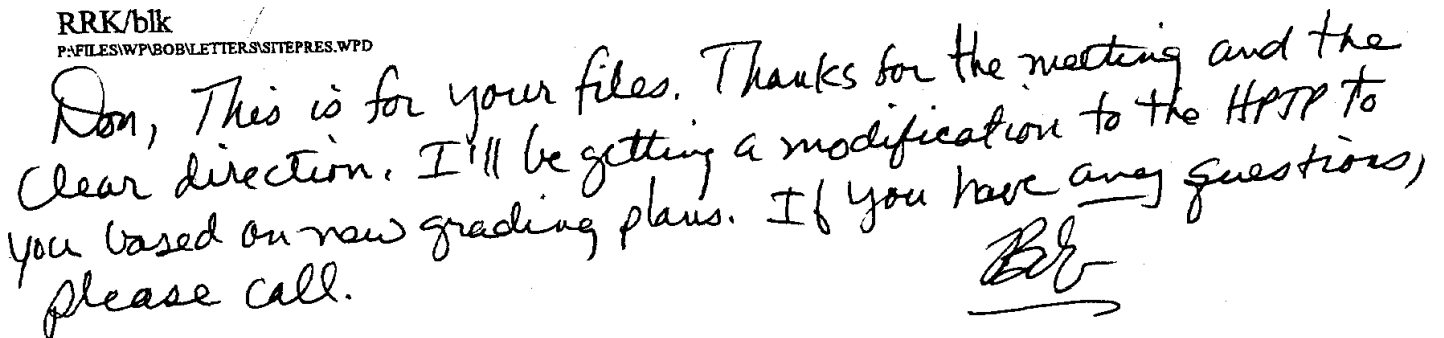 RRK/blk
P:\FILES\WP\BOB\LETTERS\SITEPRES.WPD
Don, This is for your files. Thanks for the meeting and the
Clear direction. I'll be getting a modification to the HPTP to
you based on new grading plans. If you have any questions,
please call.
Bob